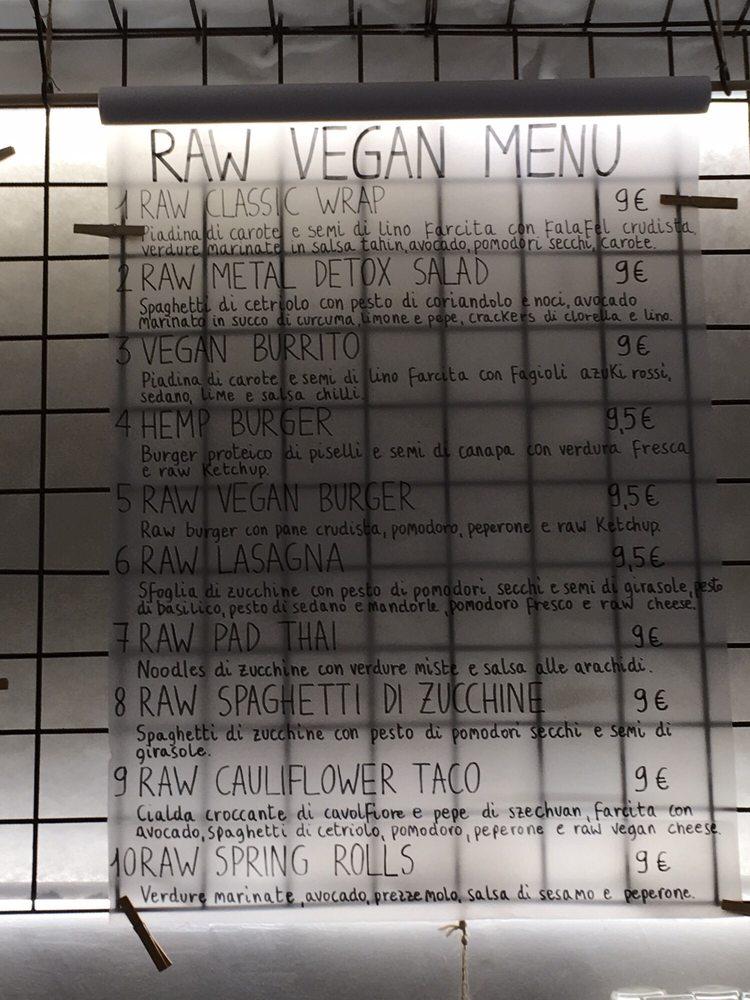 RAW VEGAN MENU
1 RAW CLASSIC WRAP 9€
Piadina di carote e semi di lino farcita con falafel crudista,
verdure marinate in salsa tahin, avocado, pomodori secchi, carote.
2 RAW METAL DETOX SALAD 9€
Spaghetti di cetriolo con pesto di coriandolo e noci, avocado
marinato in succo di curcuma, limone e pepe, crackers di clorella e lino.
3 VEGAN BURRITO 9€
Piadina di carote e semi di lino farcita con fagioli azuki rossi,
sedano, lime e salsa chilli.
4 HEMP BURGER 9,5€
Burger proteico di piselli e semi di canapa con verdura fresca
e raw Ketchup.
5 RAW VEGAN BURGER 9,5€
Raw burger con pane crudista, pomodoro, peperone e raw Ketchup.
6 RAW LASAGNA 9,5€
Sfoglia di zucchine con pesto di pomodori secchi e semi di girasole, pesto
di basilico, pesto di sedano e mandorle, pomodoro fresco e raw cheese.
7 RAW PAD THAI 9€
Noodles di zucchine con verdure miste e salsa alle arachidi.
8 RAW SPAGHETTI DI ZUCCHINE 9€
Spaghetti di zucchine con pesto di pomodori secchi e semi di
girasole.
9 RAW CAULIFLOWER TACO 9€
Cialda croccante di cavolfiore e pepe di szechuan, farcita con
avocado, spaghetti di cetriolo, pomodoro, peperone e raw vegan cheese.
10 RAW SPRING ROLLS 9€
Verdure marinate, avocado, prezzemolo, salsa di sesamo e peperone.